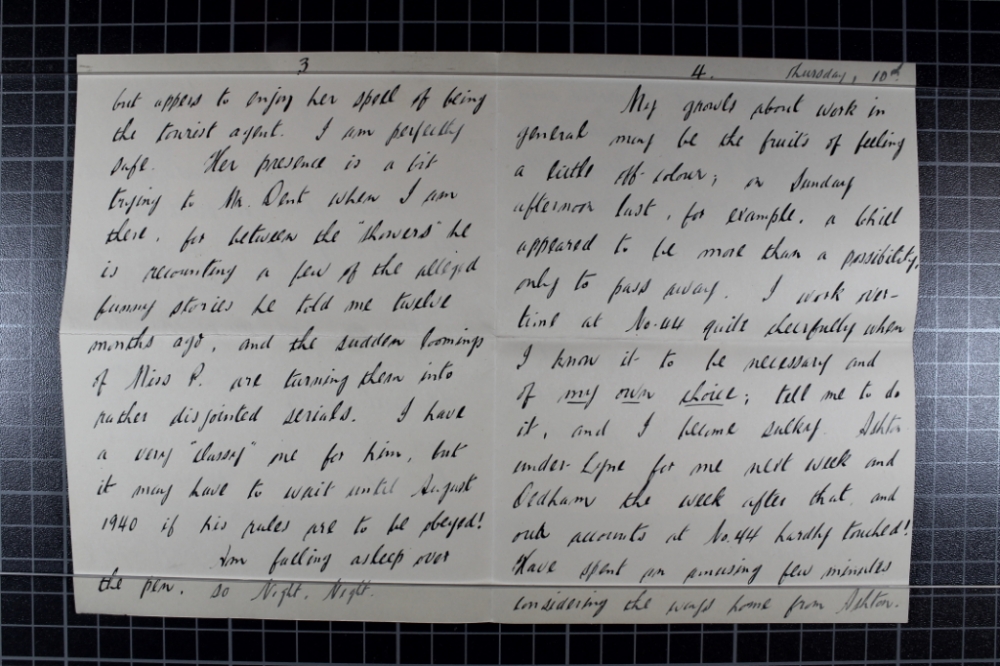 3
but appears to enjoy her spell of being
the tourist agent. I am perfectly
safe. Her presence is a bit
trying to Mr. Dent when I am
there, for between the "showers" he
is recounting a few of the alleged
funny stories he told me twelve
months ago, and the sudden loomings
of Miss P. are turning them into
rather disjointed serials. I have
a very "classy" one for him, but
it may have to wait until August
1940 if his rules are to be obeyed!
Am falling asleep over
the pen, so Night, Night.
4. Thursday, 10th
My growls about work in
general may be the fruits of feeling
a little off-colour; on Sunday
afternoon last, for example, a chill
appeared to be more than a possibility,
only to pass away. I work over-
time at No. 44 quite cheerfully when
I know it to be necessary and
of my own choice; tell me to do
it, and I become sulky. Ashton-
under-Lyne for me next week and
Dedham the week after that, and
our accounts at No. 44 hardly touched!
Have spent an amusing few minutes
considering the ways home from Ashton.